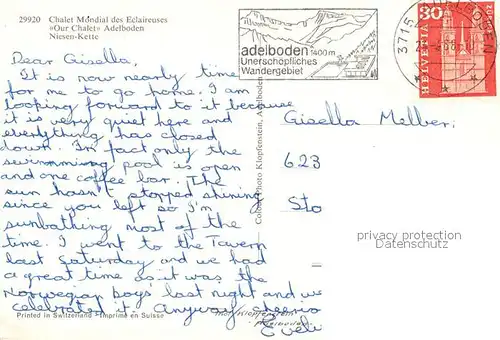 29920 Chalet Mondial des Eclaireuses
«Our Chalet» Adelboden
Niesen-Kette
adelboden 1400m
Unerschöpfliches
Wandergebiet
3715 ADELBODEN
30
HELVETIA
Dear Gisella,
It is now nearly time
for me to go home. I am
looking forward to it because
it is very quiet here and
everything has closed
down. In fact only the
swimming pool is open
and one coffee bar. The
sun hasn't stopped shining
since you left so I'm
sunbathing most of the
time. I went to the Tavern
last Saturday and we had
a great time as it was the
Norwegian boys' last night and we
celebrated it. Anyway cheerio
Eveli
Gisella Melber
623
Sto
privacy protection
Datenschutz
Photo Klopfenstein, Adelboden
Printed in Switzerland - Imprimé en Suisse